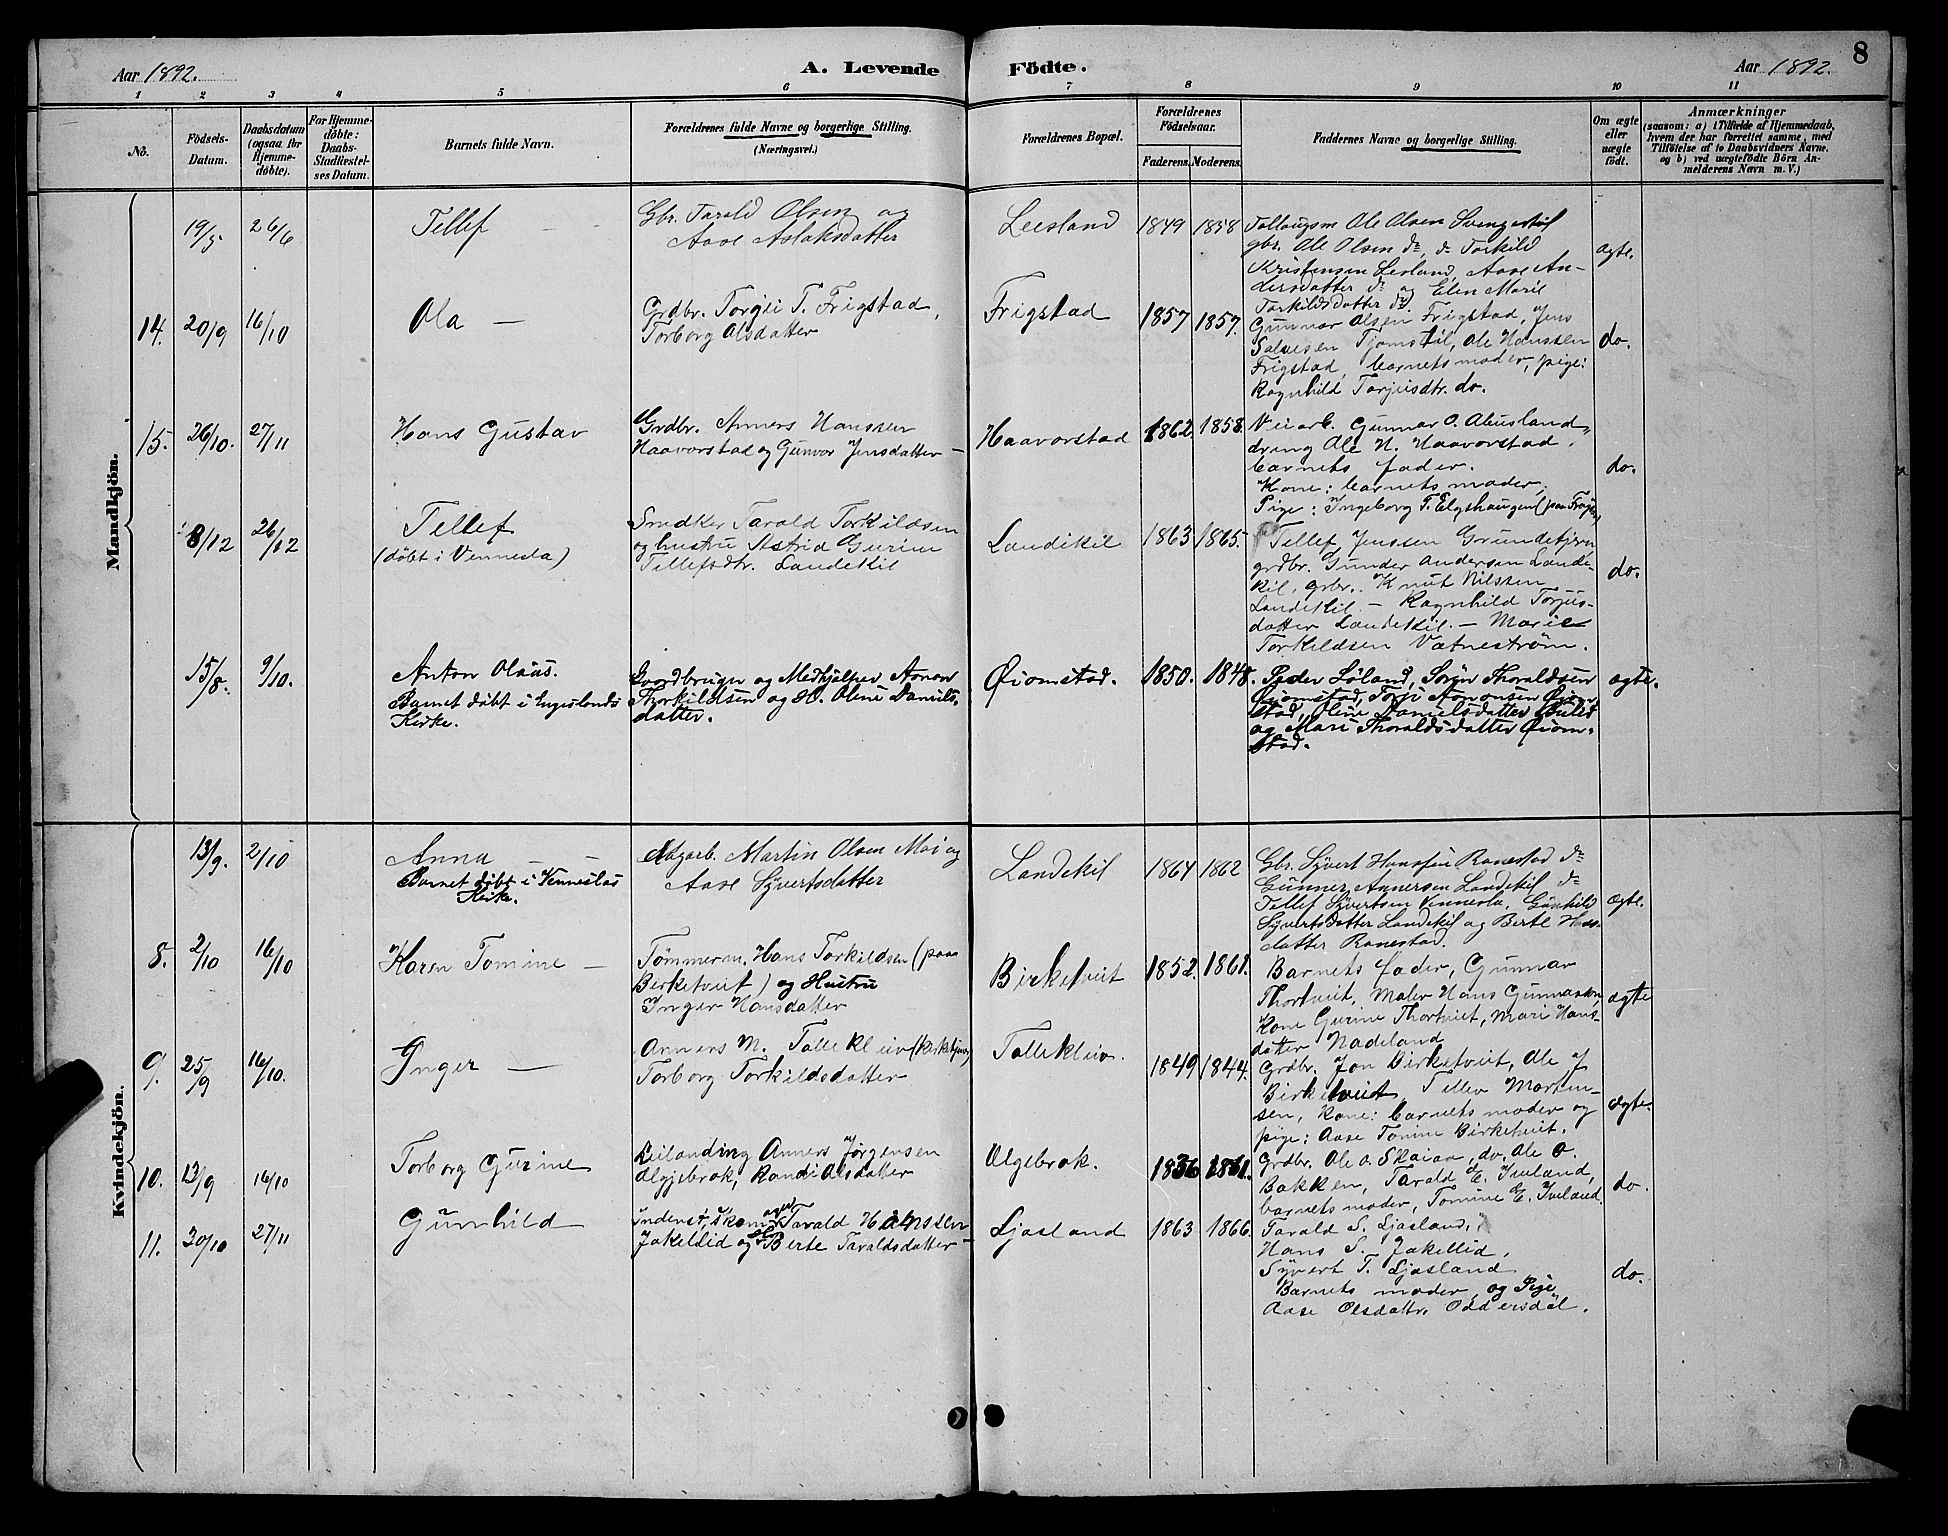 8
Aar 1892. A. Levende Födte. Aar 1892.
1 2 3 4 5 6 7 8 9 10 11
No.
Födsels-
Datum.
Daabsdatum
(ogsaa for
Hjemme-
døbte).
For Hjemme-
døbte:
Daabs-
Stadfæstel-
ses Datum.
Barnets fulde Navn.
Forældrenes fulde Navne og borgerlige Stilling.
(Næringsvei.)
Forældrenes Bopæl.
Forældrenes
Födselsaar.
Faderens. Moderens.
Faddernes Navne og borgerlige Stilling.
Om ægte
eller
uægte
födt.
Anmærkninger
(saasom: a) i Tilfælde af Hjemmedaab,
hvem der har forrettet samme, med
Tilföielse af to Daabsvidners Navne.
og b) ved uægtefödte Börn An-
melderens Navn m. V.)
Mandkjön.
19/5. 26/6
Tellef —
Gbr. Tarald Olsen og
Aase Aslaksdatter
Leesland
1849 1858
Toldugsm Ole Olsen
gbr. Ole Olsen do, do Torkild
Kristensen Lesland, Aase An-
dersdatter do og Elen Marie
Torkildsdatter do.
ægte.
14. 20/9 16/10
Ola —
Grdbr. Torgei T. Frigstad,
Torborg Olsdatter
Frigstad
1857 1857.
Gunnar Olsen Frigstad, Jens
Salvesen Tjomstöl, Ole Hanssen
Frigstad, barnets moder, pige:
Ragnhild Torjusdtr. do.
do.
15. 26/10. 27/11
Hans Gustav
Grdbr. Anners Hanssen
Haavorstad og Gunvor Jensdatter —
Haavorstad
1862. 1858.
Veiarb. Gunnar O. Abusland,
dreng Ole H. Haavorstad,
barnets fader.
Kone: barnets moder,
Pige: Ingeborg T. Elgshaugen
do.
8/12 26/12
Tellef
(døbt i Vennesla)
Snedker Tarald Torkildsen
og hustru Astrid Gurine
Tellefsdtr. Landekil
Landikil
1863 1865.
Tellef Jenssen Grundetjern
grdbr. Gunder Andersen Lande-
kil, grbr. Knut Nilssen
Landekil. — Ragnhild Torjus-
datter Landekil. — Marie
Torkildsen Vatneström.
do.
15/8. 9/10.
Anton Olaus.
Barnet døbt i Engeslands
Kirke.
Gaardbruger og Medhjælper Aanon
Thorkildsen og H. Oline Daniels-
datter.
Øiomstad.
1850. 1848.
Peder Løland, Søren Thoraldsen
Øiomstad, Torje Aanonsen Øiom-
stad, Oline Danielsdatter
og Mari Thoraldsdatter Øiom-
stad.
ægte.
Kvindekjön.
13/9. 2/10
Anna — —
Barnet døbt i Venneslas
Kirke.
Martin Olsen Moi og
Aase Syvertsdatter
Landekil
1864 1862
Gbr. Syvert Hanssen Ronestad do
Gunner Annersen Landekil do
Tellef Syvertsen Vennesla, Gunhild
Syvertsdatter Landekil og Berte Hans-
datter Ronestad.
ægte.
8. 2/10 16/10
Karen Tomine —
Tømmerm. Hans Torkildsen (paa
Birketveit) og Hustru
Inger Hansdatter
Birketveit
1852. 1861.
Barnets fader, Gunnar
Thortveit, Maler Hans Gunnarson,
Kone Gurine Thortveit, Mari Hans-
datter Nadeland
ægte
9. 25/9 16/10.
Inger —
Anners M. Tallekleiv (kirketjener)
Torborg Torkildsdatter
Tallekleiv.
1849 1844.
Grdbr. Jon Birketveit, Ole J
Birketveit, Tellev Morten-
sen, kone: barnets moder og
pige: Aase Tomine Birketveit.
ægte.
10. 13/9 16/10
Torborg Gurine
Leilænding Anners Jørgensen
Øgjebrok, Randi Olsdatter
Ulgebrok.
1836 1861.
Grdbr. Ole O. Skaiaa, do. Ole O.
Bakken, Tarald E. Iveland,
barnets moder, Tomine E. Iveland.
do.
11. 30/10 27/11
Gunnhild
Inderst, Skomager Tarald Hanssen
Jakellid og Berte Taraldsdatter —
Ljosland
1863 1866.
Tarald S. Ljosland,
Hans S. Jakellid,
Syvert T. Ljosland
Barnets moder, og Pige
Aase Olsdattr. Oddersdal.
do.